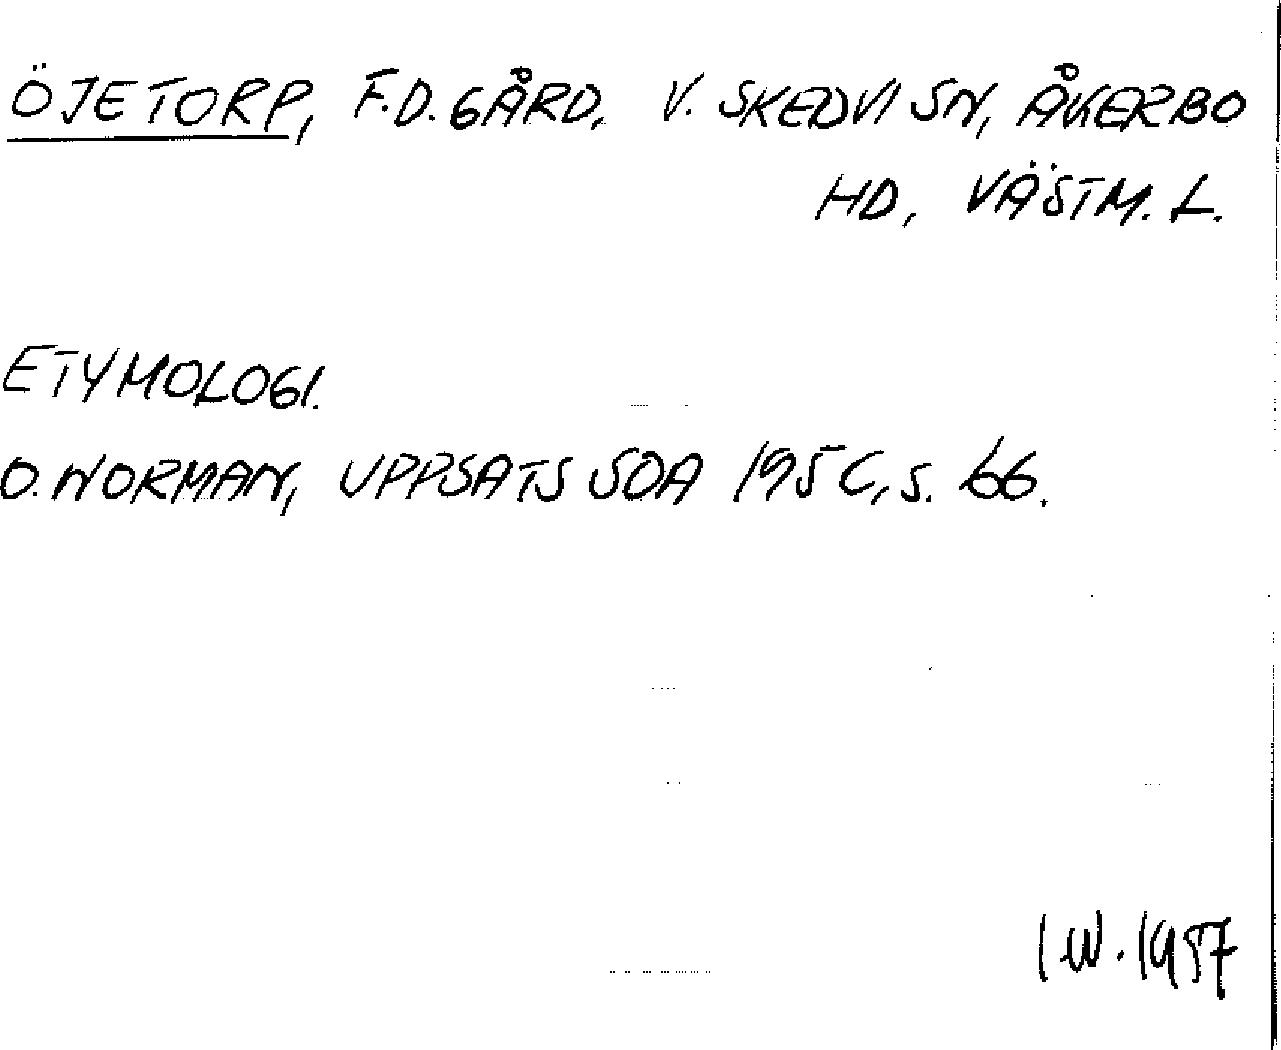 ÖJETORP, F.D. GÅRD, V. SKEDVI SN, ÅKERBO
HD, VÄSTM. L.
ETYMOLOGI.
O. NORMAN, UPPSATS SOA 195C, S. 66.
IW. 1957